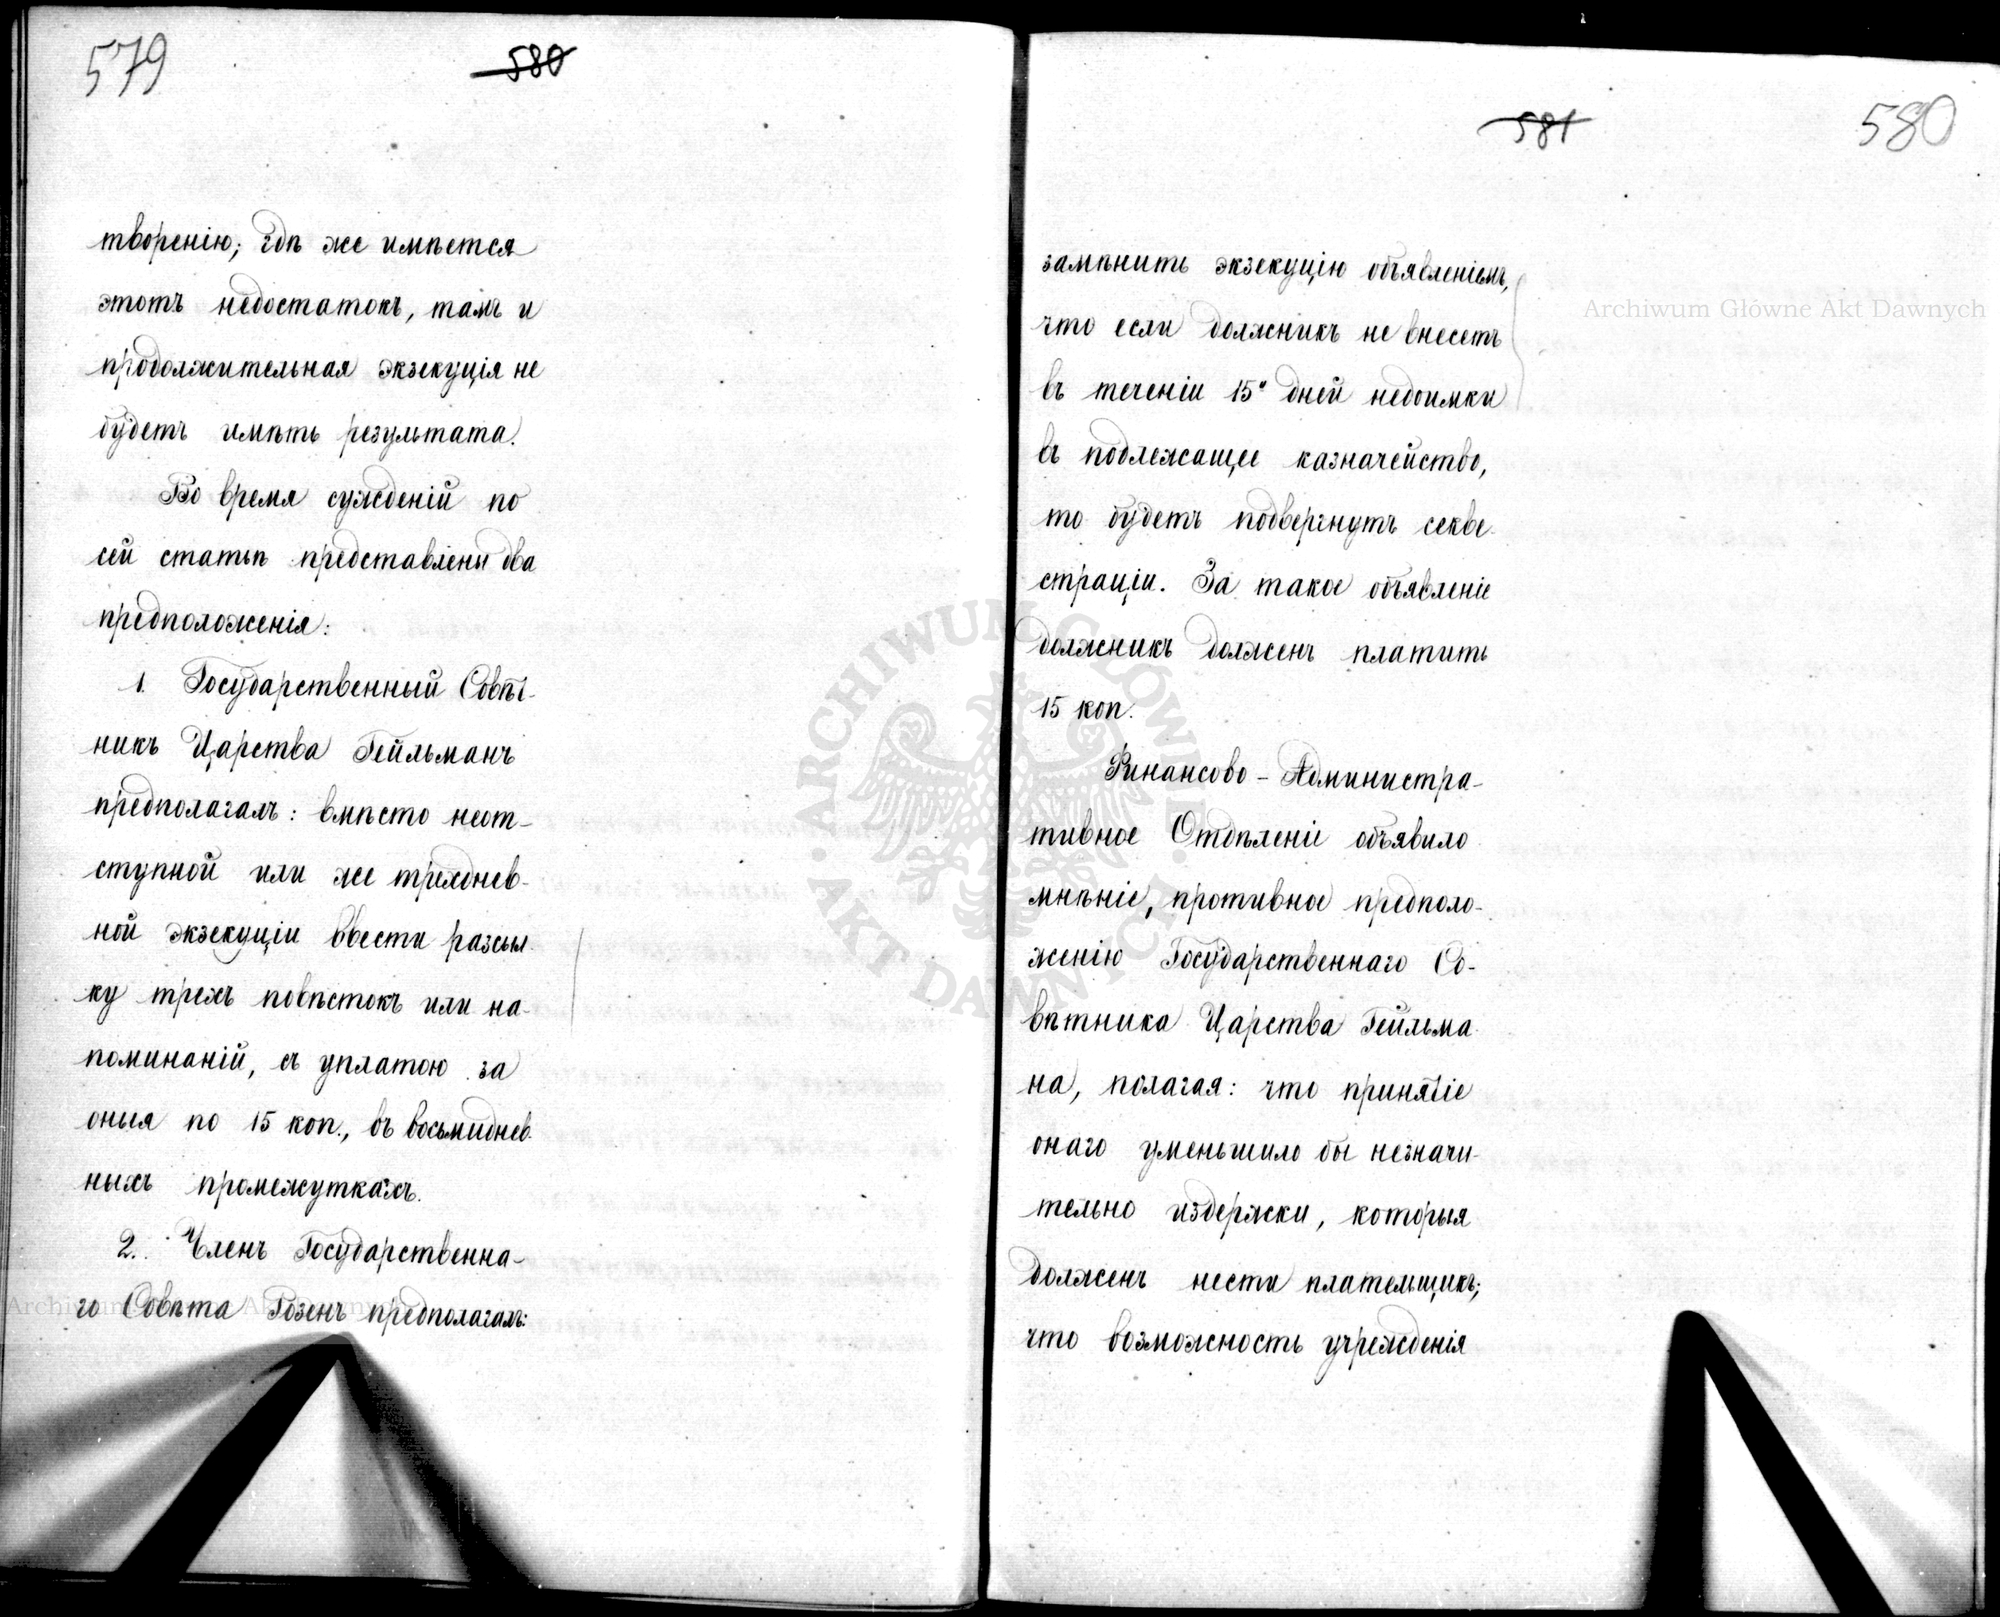 579
580
творенію; гдѣ же имѣется
этотъ недостатокъ, тамъ и
продолжительная экзекуція не
будетъ имѣть результата.
Во время сужденій по
сей статьѣ представлены два
предположенія:
1. Государственный Совѣт-
никъ Царства Гейльманъ
предполагалъ: вмѣсто неот-
ступной или же трехднев-
ной экзекуціи ввести разсыл-
ку трехъ повѣстокъ или на-
поминаній, съ уплатою за
оныя по 15 коп., въ восьмиднев-
ныхъ промежуткахъ.
2. Членъ Государственна-
го Совѣта Гозенъ предполагалъ:
581
580
замѣнить экзекуцію объявленіемъ,
что если должникъ не внесетъ
въ теченіи 15и дней недоимки
въ подлежащее казначейство,
то будетъ подвергнутъ секве-
страціи. За такое объявленіе
должникъ долженъ платить
15 коп.
Финансово-Администра-
тивное Отдѣленіе объявило
мнѣніе, противное предполо-
женію Государственнаго Со-
вѣтника Царства Гейльма-
на, полагая: что принятіе
онаго уменьшило бы незначи-
тельно издержки, которыя
долженъ нести плательщикъ;
что возможность учрежденія
Archiwum Główne Akt Dawnych
ARCHIWUM GŁÓWNE AKT DAWNYCH
Archiwum Główne Akt Dawnych